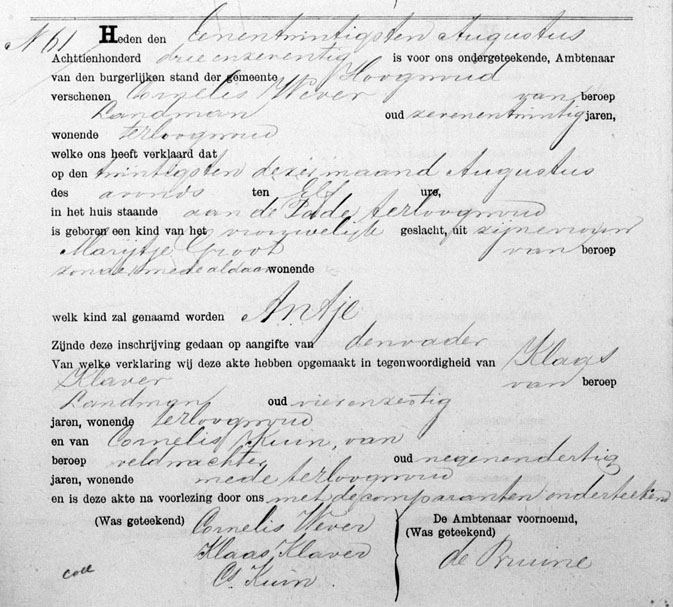 N 61 Heden den Eenentwintigsten Augustus
Achttienhonderd drie en zeventig is voor ons ondergeteekende, Ambtenaar
van den burgerlijken stand der gemeente Hoogwoud
verschenen Cornelis Wever van beroep
Landman oud zevenentwintig jaren,
wonende terloogwoud
welke ons heeft verklaard dat
op den twintigsten dezer maand Augustus
des avonds ten Elf ure,
in het huis staande aan de Pade terloogwoud
is geboren een kind van het vrouwelijk geslacht, uit zijne vrouw
Marijtje Groot van beroep
zonder mede aldaar wonende
welk kind zal genaamd worden Antje
Zijnde deze inschrijving gedaan op aangifte van den vader
Van welke verklaring wij deze akte hebben opgemaakt in tegenwoordigheid van Klaas
Klaver van beroep
Landman, oud vierenzestig
jaren, wonende terloogwoud
en van Cornelis Kuin, van
beroep veldwachter oud negenendertig
jaren, wonende mede terloogwoud
en is deze akte na voorlezing door ons met de comparanten onderteekend
(Was geteekend) Cornelis Wever De Ambtenaar voornoemd,
Klaas Klaver (Was geteekend)
Cs Kuin. de Bruine
coll